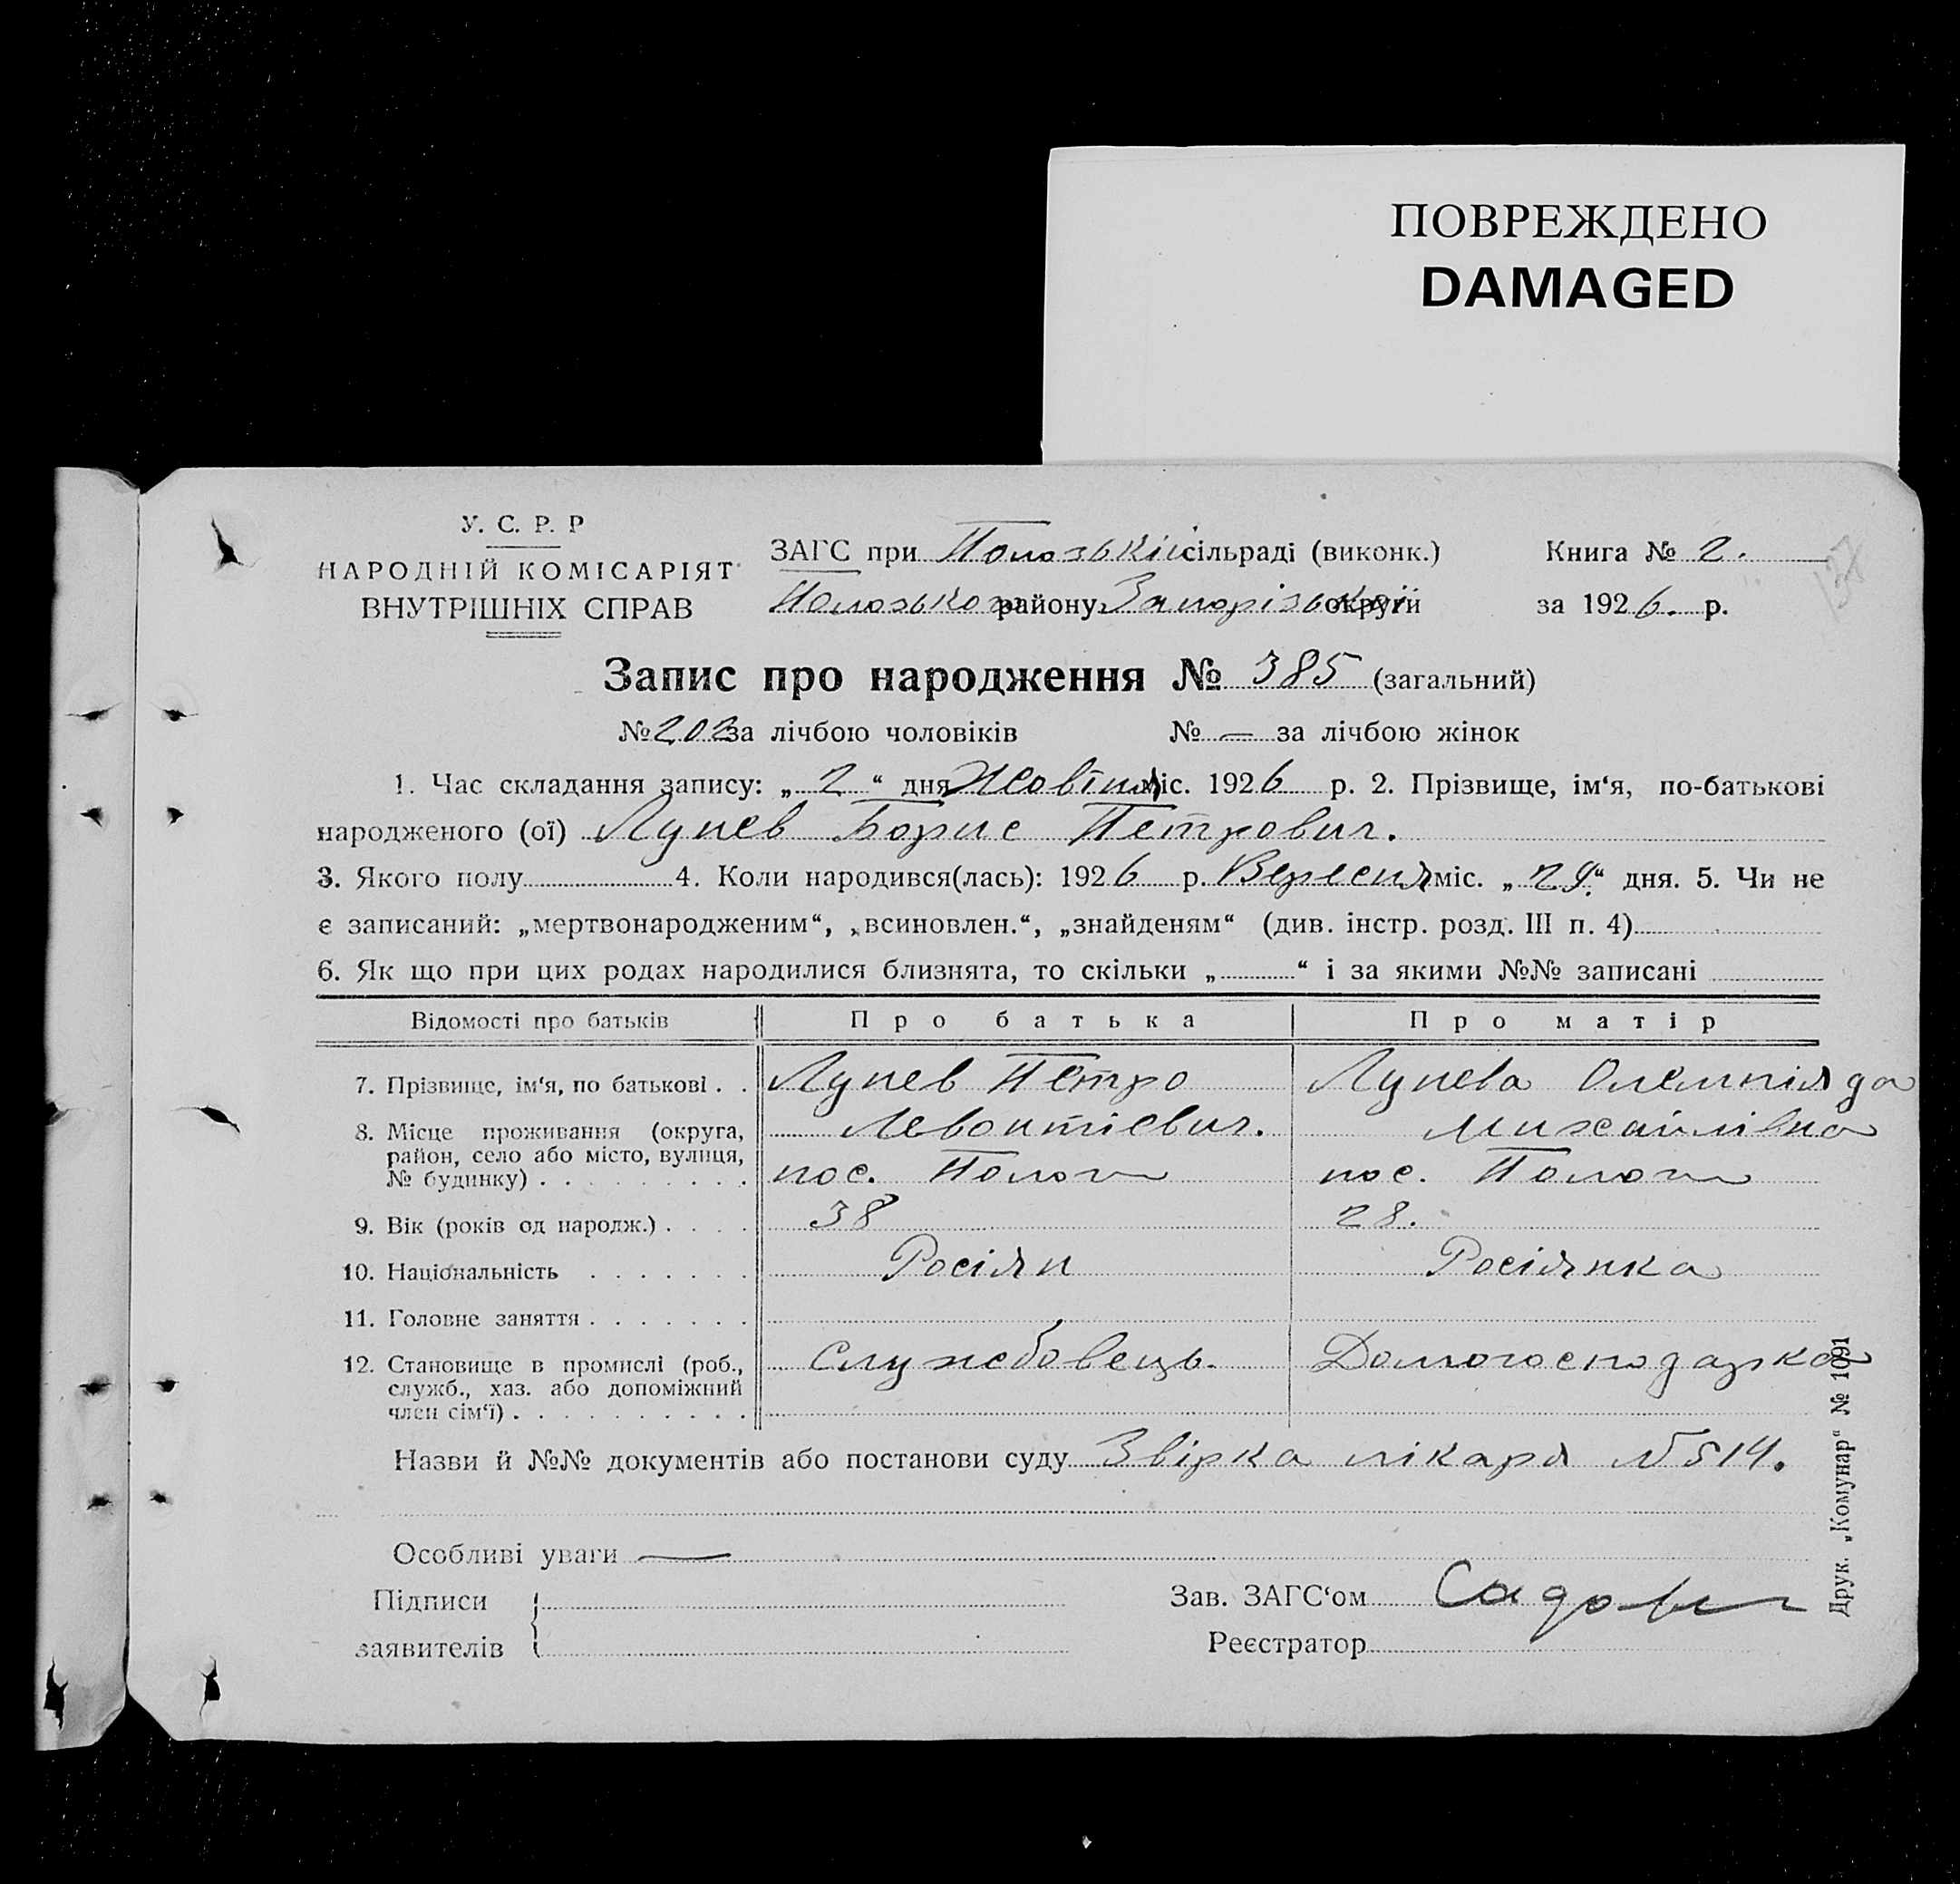 ПОВРЕЖДЕНО
DAMAGED
У. С. Р. Р
НАРОДНІЙ КОМІСАРІЯТ
ВНУТРІШНІХ СПРАВ
ЗАГС при Пологській сільраді (виконк.)
Пологського району Запорізької округи
Книга № 2.
за 1926. р.
137
Запис про народження № 385 (загальний)
№ 203 за лічбою чоловіків № — за лічбою жінок
1. Час складання запису: „ 2 “ дня Жовтня міс. 1926 р. 2. Прізвище, ім‘я, по-батькові
народженого (ої) Лунев Борис Петрович.
3. Якого полу 4. Коли народився(лась): 1926 р. Вересня міс. „ 29. “ дня. 5. Чи не
є записаний: „мертвонародженим“, „всиновлен.“, „знайденям“ (див. інстр. розд. III п. 4)
6. Як що при цих родах народилися близнята, то скільки „ “ і за якими №№ записані
Відомості про батьків Про батька Про матір
7. Прізвище, ім‘я, по батькові . . Лунев Петро Лунева Олемпіяда
Левонтієвич. Михайлівна
8. Місце проживання (округа,
район, село або місто, вулиця,
№ будинку) . . . . . . . . . пос. Пологи пос. Пологи
9. Вік (років од народж.) . . . . 38 28.
10. Національність . . . . . . . Росіян Росіянка
11. Головне заняття . . . . . . .
12. Становище в промислі (роб.,
служб., хаз. або допоміжний
член сім‘ї) . . . . . . . . . . Служебовець. Домогосподарка
Назви й №№ документів або постанови суду Звірка лікаря № 514.
Особливі уваги —
Підписи
заявителів
Зав. ЗАГС‘ом
Реєстратор
Друк. „Комунар“ № 1091